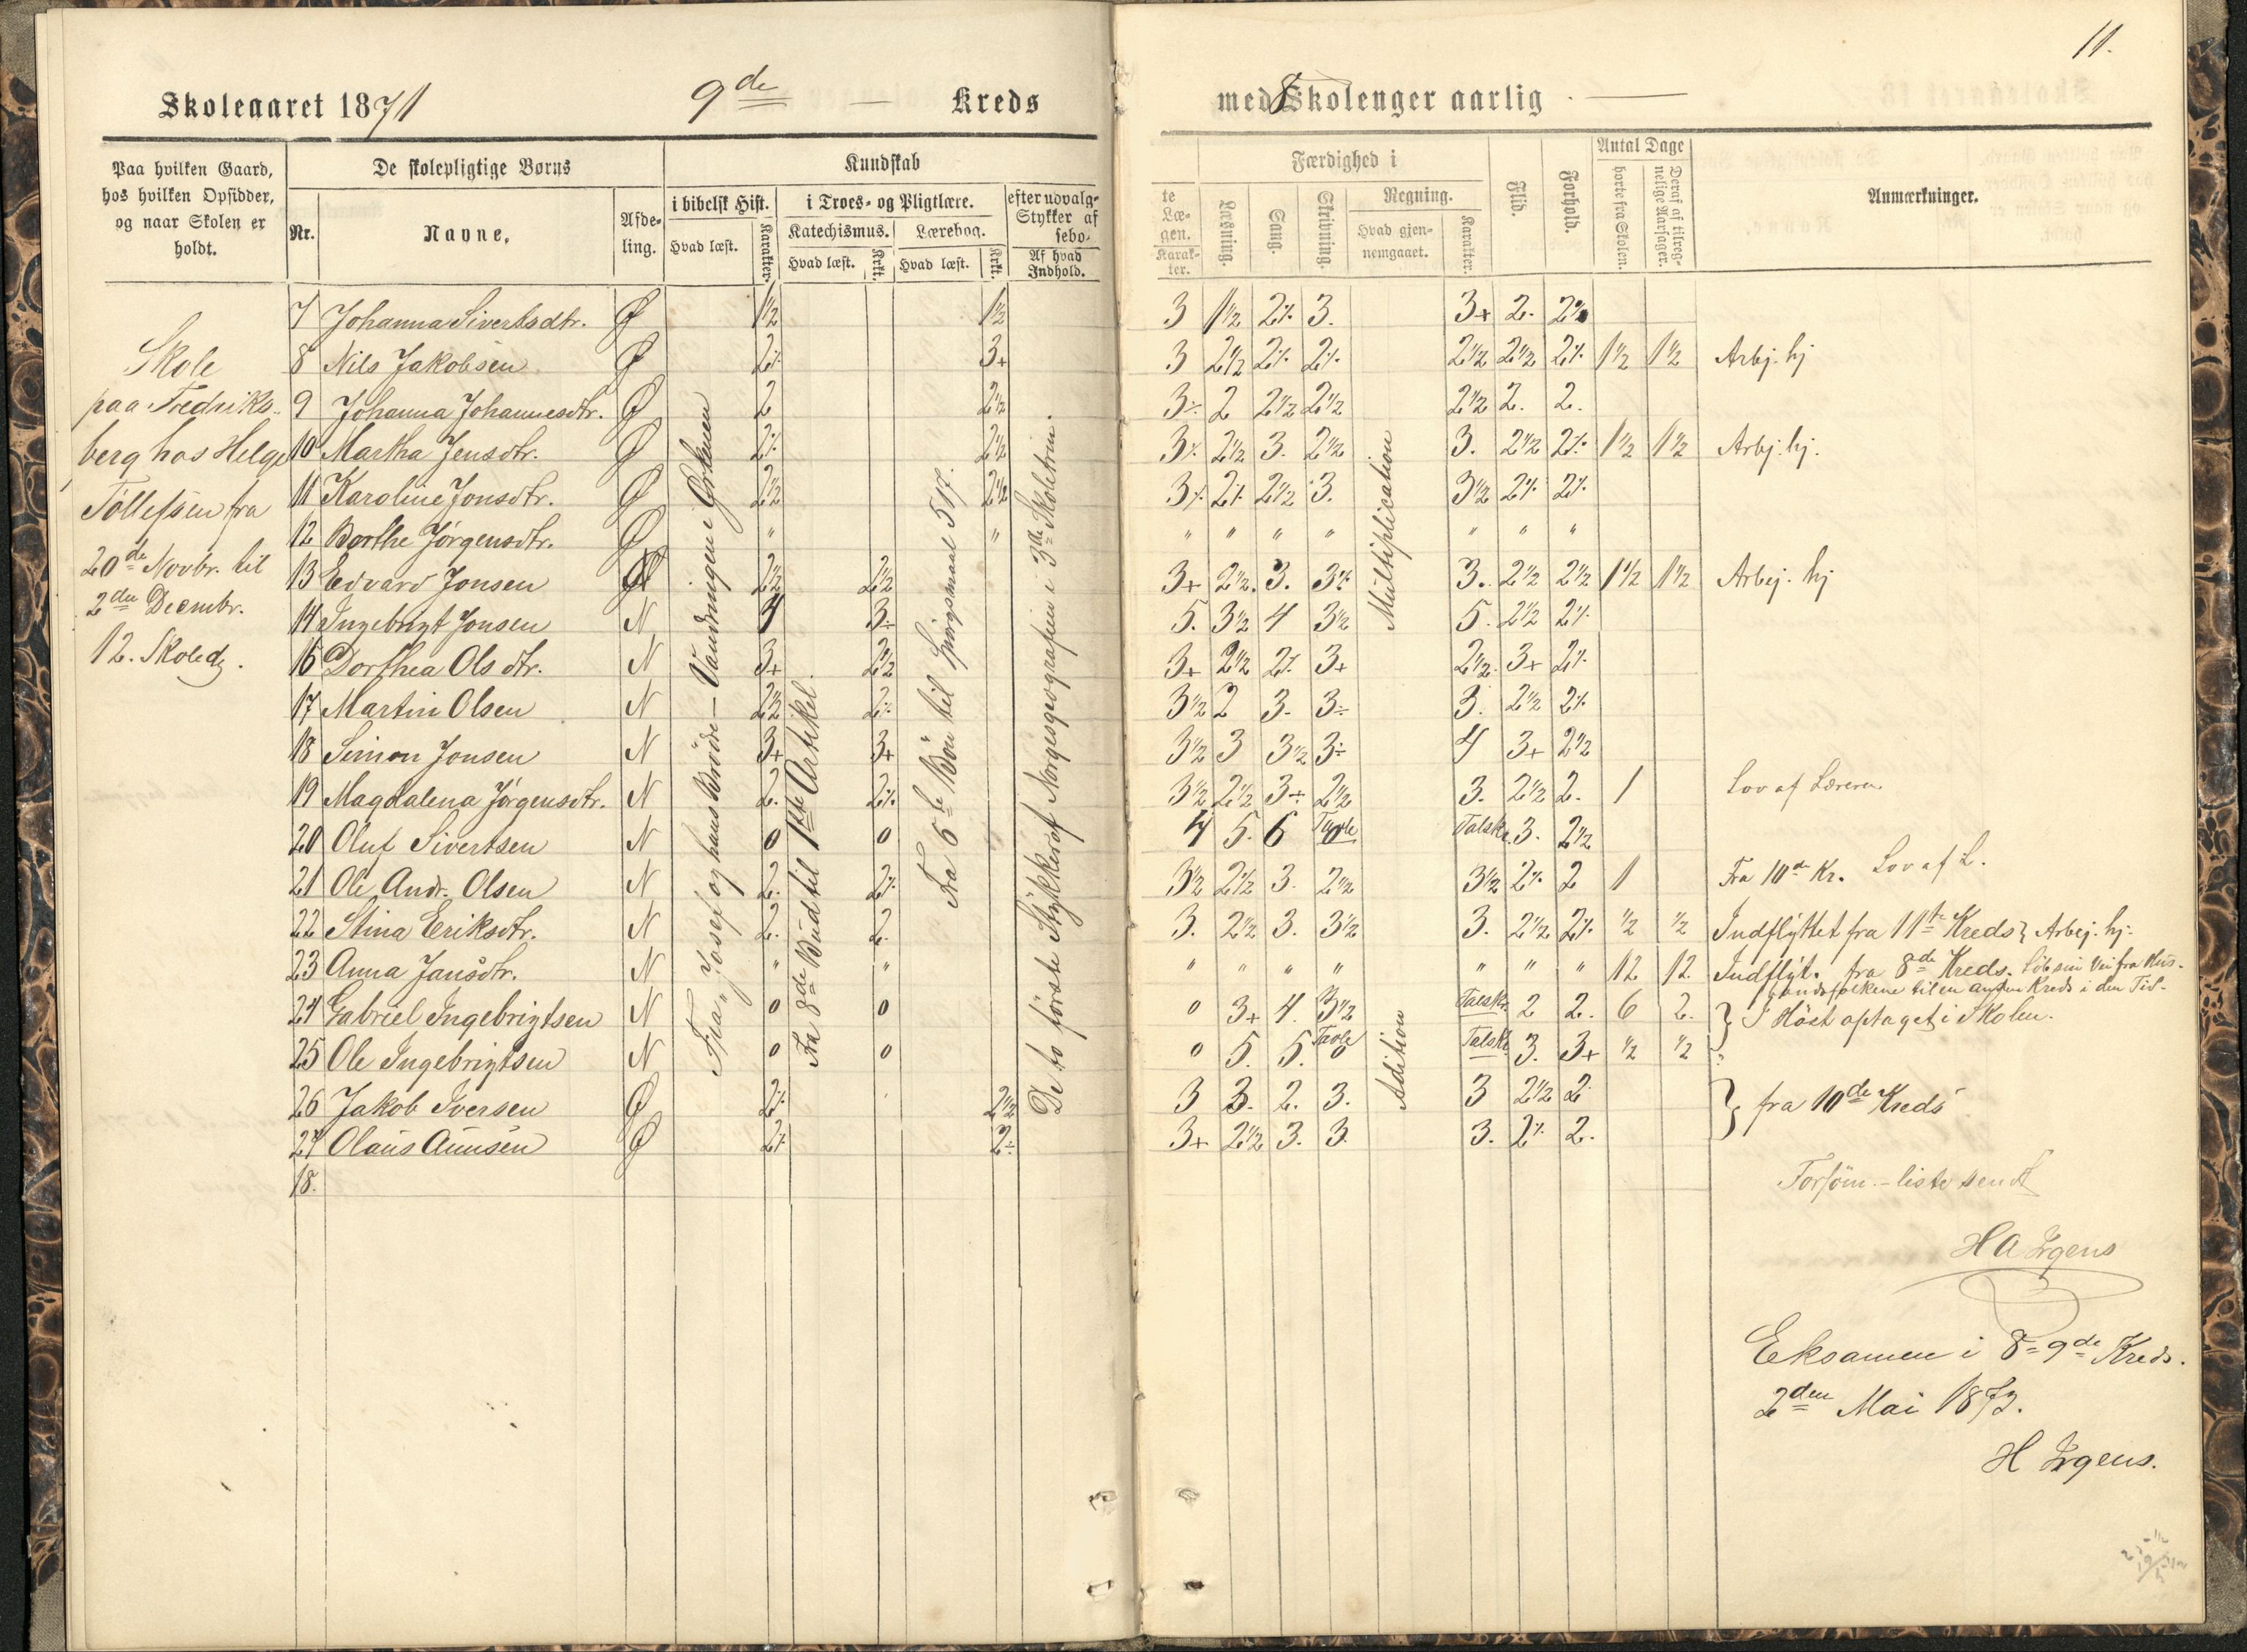 11.
Skoleaaret 1871 9de Kreds
med 8 Skoleuger aarlig
Paa hvilken Gaard, hos hvilken Opsidder, og naar Skolen er holdt.
De skolepligtige Børns
Nr. Navne. Afdeling.
Kundskab
i bibelsk Hist. Hvad læst. Karakter.
i Troes- og Pligtlære.
Katechismus. Hvad læst. Krkt.
Lærebog. Hvad læst. Krkt.
efter udvalg- Stykker af sebo- Af hvad Indhold.
te Læ- gen. Karakter.
Færdighed i
Læsning. Sang. Skrivning.
Regning. Hvad gjennemgaaet. Karakter.
Flid. Forhold.
Antal Dage
borte fra Skolen. Deraf af tilregnelige Aarsager.
Anmærkninger.
Skole
paa Fredriks-
berg hos Helge
Tollefsen fra
20de Novbr. til
2den Decmbr.
12. Skoledg.
Fra "Josef og hans Brödre – Vandringen i Ørkenen
Fra 8de Bud til 1ste Artikel.
Fra 6te Bön til Spörgsmaal 517.
De to förste Stykker af Norgesgeografien i 3die Skoletrin.
Multiplication
Adition
7 Johanna Sivertsdtr. Ø 1½ 1½ 3 1½ 2% 3. 3+ 2. 2%
8 Nils Jakobsen Ø 2% 3+ 3 2½ 2% 2% 2½ 2½ 2% 1½ 1½ Arbj. hj
9 Johanna Johannesdtr. Ø 2 2½ 3÷ 2 2½ 2½ 2½ 2. 2.
10 Martha Jensdtr. Ø 2% 2½ 3% 2½ 3. 2½ 3. 2½ 2% 1½ 1½ Arbj. hj.
11 Karoline Jonsdtr. Ø 2½ 2½ 3% 2% 2½ 3. 3½ 2% 2%
12 Borthe Jørgensdtr. Ø " " " " " " " " "
13 Edvard Jonsen Ø 2½ 2½ 3+ 2½. 3. 3% 3. 2½ 2½ 1½ 1½ Arbej. hj
14 Ingebrigt Jonsen N 4 3÷ 5. 3½ 4 3½ 5. 2½ 2%
16 Dorthea Olsdtr. N 3+ 2½ 3+ 2½ 2% 3+ 2½. 3+ 2%
17 Martin Olsen N 2½ 2% 3½ 2 3. 3÷ 3. 2½ 2%
18 Simon Jonsen N 3+ 3+ 3½ 3 3½ 3÷ 4 3+ 2½
19 Magdalena Jörgensdtr. N 2. 2% 3½ 2½ 3+ 2½ 3. 2½ 2. 1 Lov af Læreren
20 Oluf Sivertsen N 0 0 4 5. 6 Tavle Talskr. 3. 2½
21 Ole Andr. Olsen N 2. 2% 3½ 2½ 3. 2½ 3½ 2% 2 1 Fra 10de Kr. Lov af L.
22 Stina Eriksdtr. N 2. 2. 3. 2½ 3. 3½ 3. 2½ 2% ½ ½ Indflyttet fra 11te Kreds } Arbej. hj.
23 Anna Jansdtr. N " " " " " " " " " 12 12 Indflyt. fra 8de Kreds. Löb sin Vei fra Hus-
bondsfolkene til en anden Kreds i den Tid.
24 Gabriel Ingebrigtsen N 0 0 0 3+ 4. 3½ Talskr. 2 2. 6 2. } I Höst optaget i Skolen.
25 Ole Ingebrigtsen N 0 0 0 5 5. Tavle 0 Talskr. 3. 3+ ½ ½
26 Jakob Iversen Ø 2% 2½ 3 3. 2. 3. 3 2½ 2 } fra 10de Kreds
27 Olaus Aunsen Ø 2% 2÷ 3+ 2½ 3. 3. 3. 2% 2.
18.
Forsöm.-liste sendt
H A Irgens
Eksamen i 8=9de Kreds.
2den Mai 1872.
H Irgens.